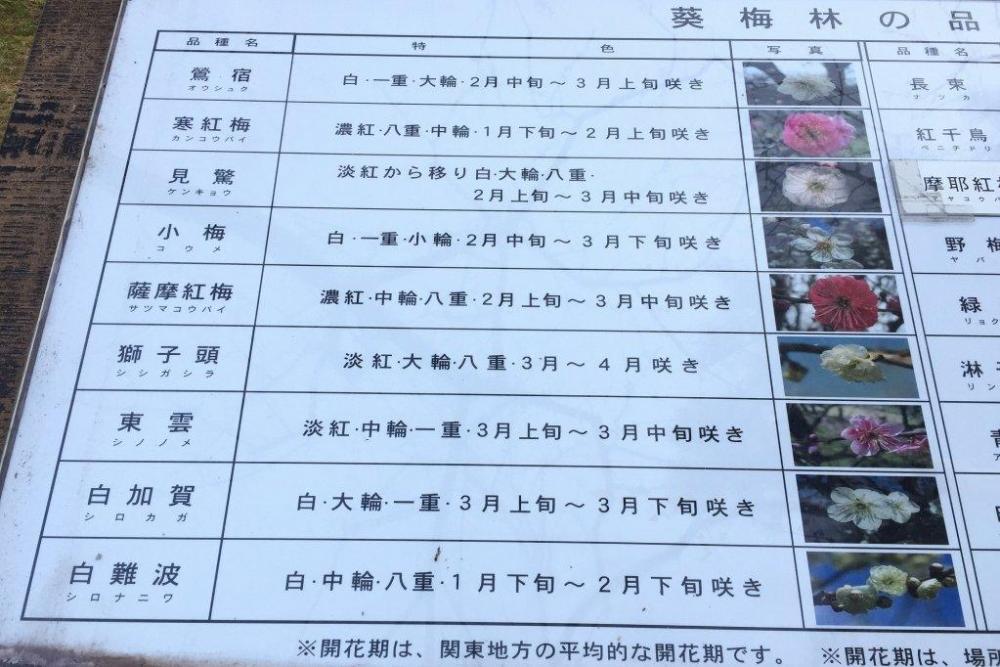 葵梅林の品
品種名 特色 写真 品種名
鶯宿 白・一重・大輪・2月中旬～3月上旬咲き
オウシュク
寒紅梅 濃紅・八重・中輪・1月下旬～2月上旬咲き
カンコウバイ
見驚 淡紅から移り白・大輪・八重・
ケンキョウ 2月上旬～3月中旬咲き
小梅 白・一重・小輪・2月中旬～3月下旬咲き
コウメ
薩摩紅梅 濃紅・中輪・八重・2月上旬～3月中旬咲き
サツマコウバイ
獅子頭 淡紅・大輪・八重・3月～4月咲き
シシガシラ
東雲 淡紅・中輪・一重・3月上旬～3月中旬咲き
シノノメ
白加賀 白・大輪・一重・3月上旬～3月下旬咲き
シロカガ
白難波 白・中輪・八重・1月下旬～2月下旬咲き
シロナニワ
長束
ナツカ
紅千鳥
ベニチドリ
摩耶紅
ヤコウバ
野梅
ヤバ
緑
リョク
淋
リン
※開花期は、関東地方の平均的な開花期です。 ※開花期は、場所